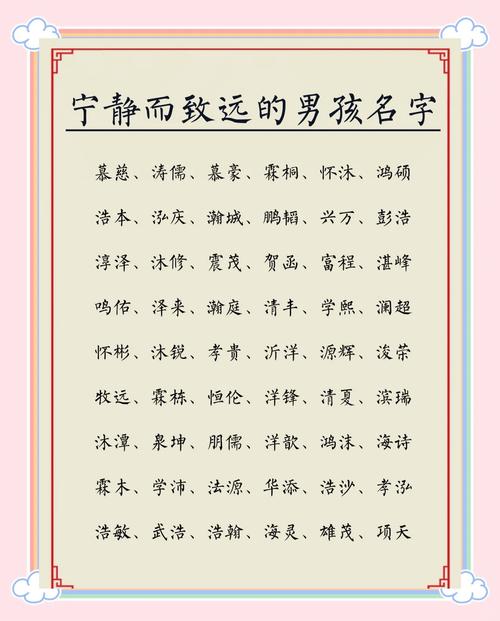 宁静而致远的男孩名字
慕慈、涛儒、慕豪、霖桐、怀沐、鸿硕
浩本、泓庆、瀚城、鹏韬、兴万、彭浩
淳泽、沐修、震茂、贺函、富程、湛峰
鸣佑、泽来、瀚庭、清丰、学熙、澜超
怀彬、沐锐、孝贵、沂洋、源辉、浚荣
牧远、霖栋、恒伦、洋锋、清夏、滨瑞
沐潭、泉坤、朋儒、洋歆、鸿沫、海诗
霖木、学沛、法源、华添、浩沙、孝泓
浩敏、武浩、浩翰、海灵、雄茂、项天